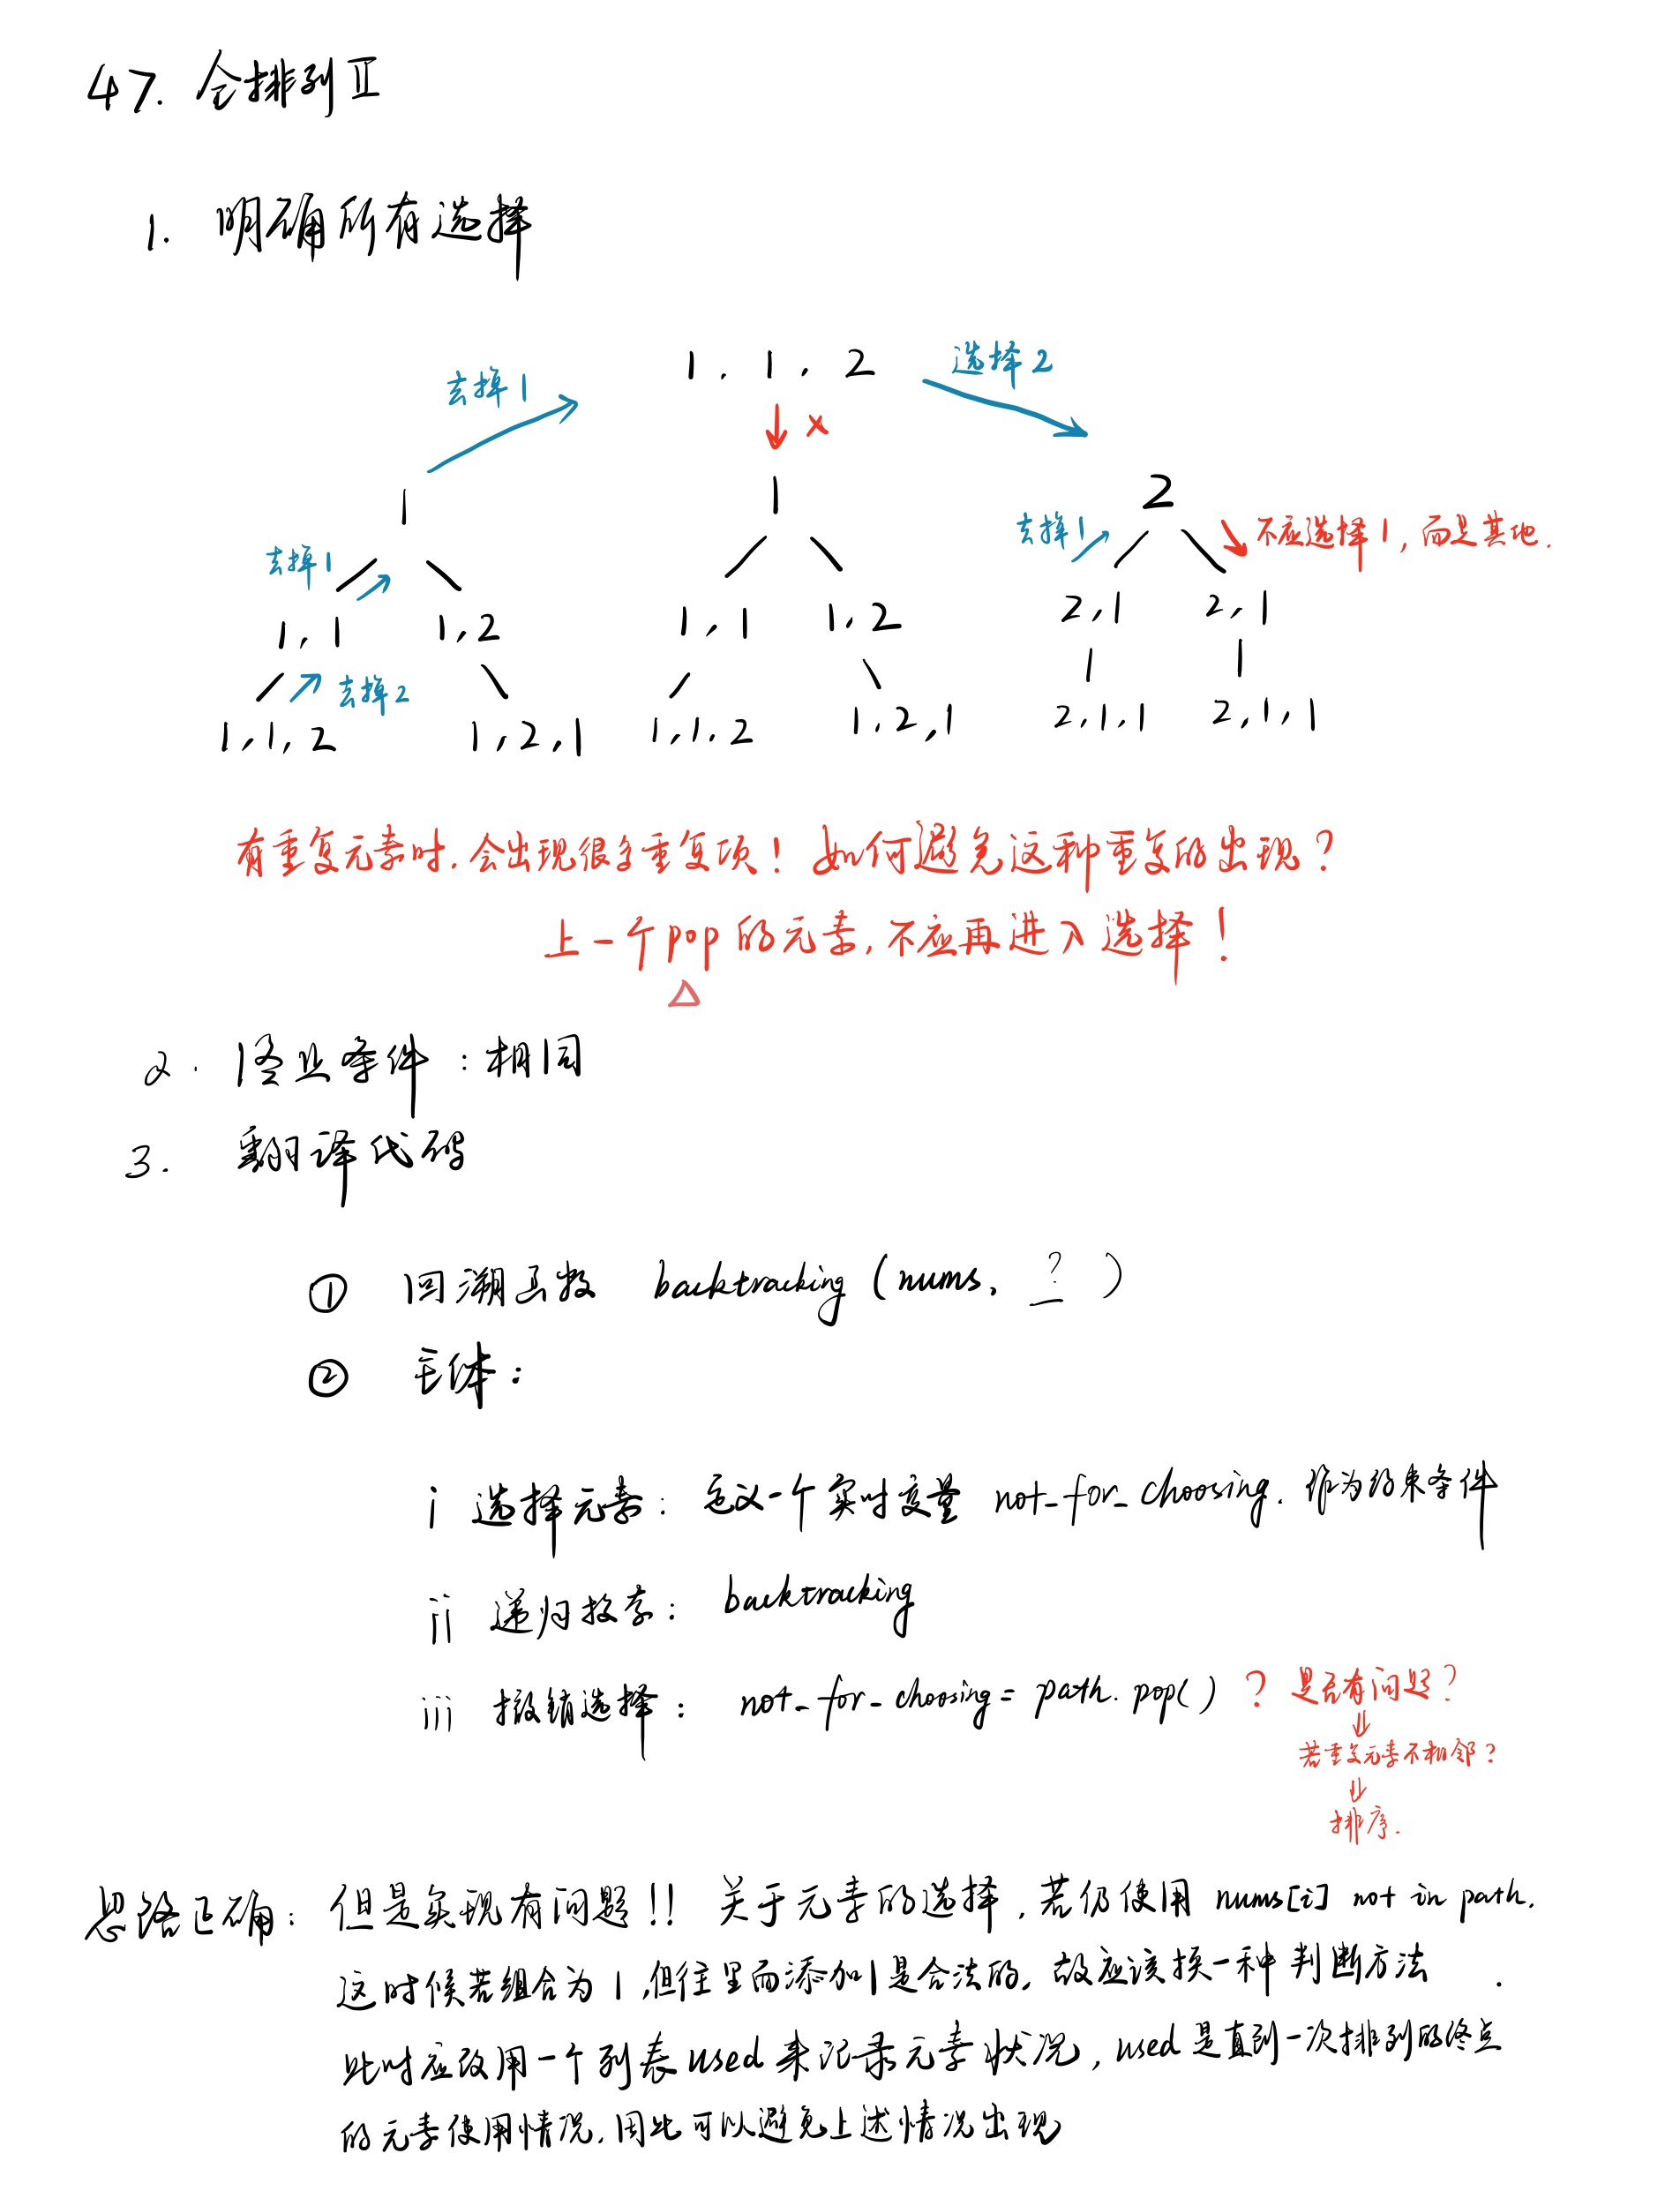 47. 全排列 II
1. 明确所有选择
1, 1, 2
去掉1
选择2
×
1 1 2
去掉1
去掉1
不应选择1, 而是其他.
1,1 1,2 1,1 1,2 2,1 2,1
去掉2
1,1,2 1,2,1 1,1,2 1,2,1 2,1,1 2,1,1
有重复元素时, 会出现很多重复项! 如何避免这种重复的出现?
上一个pop的元素, 不应再进入选择!
△
2. 终止条件: 相同
3. 翻译代码
① 回溯函数 backtracking (nums, ? )
② 主体:
i 选择元素: 定义一个实时变量 not_for_choosing. 作为约束条件
ii 递归搜索: backtracking
iii 撤销选择: not_for_choosing = path.pop() ? 是否有问题?
⇓
若重复元素不相邻?
⇓
排序.
思路正确: 但是实现有问题!! 关于元素的选择, 若仍使用 nums[i] not in path.
这时候若组合为1, 但往里面添加1是合法的, 故应该换一种判断方法.
此时应改用一个列表used来记录元素状况, used是直到一次排列的终点
的元素使用情况, 因此可以避免上述情况出现